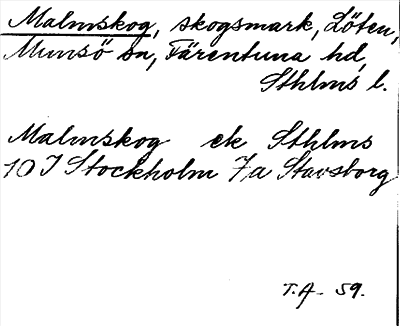 Malmskog, skogsmark, Löten,
Munsö sn, Färentuna hd,
Sthlms l.
Malmskog ek Sthlms
10 I Stockholm 7,a Stavsborg
T.A. 59.